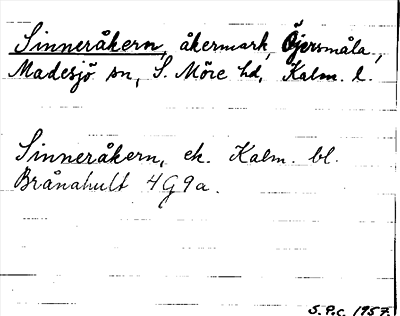 Sinneråkern, åkermark, Öjersmåla,
Madesjö sn, S. Möre hd, Kalm. l.
Sinneråkern, ek. Kalm. bl.
Brånahult 4G9a.
S.P.c. 1957.